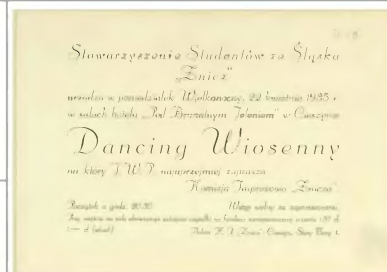 Stowarzyszenie Studentów ze Śląska
„Znicz”
urządza w poniedziałek Wielkanocny, 22 kwietnia 1935 r.
w salach hotelu „Pod Brunatnym Jeleniem” w Cieszynie
Dancing Wiosenny
na który T. W. P. najuprzejmiej zaprasza
Komisja Imprezowa „Znicza”
Początek o godz. 20.30 Wstęp wolny za zaproszeniem.
Przy wejściu na salę obowiązuje